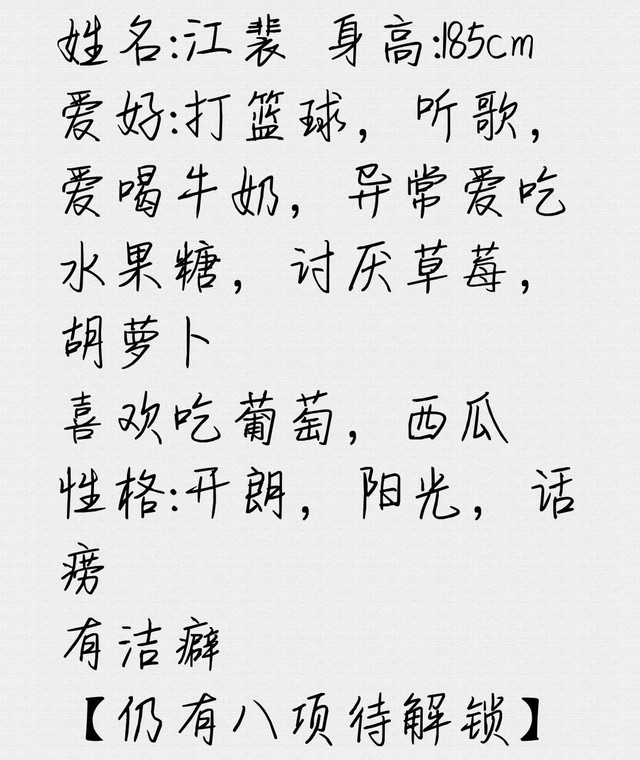 姓名:江裴 身高:185cm
爱好:打篮球，听歌，
爱喝牛奶，异常爱吃
水果糖，讨厌草莓，
胡萝卜
喜欢吃葡萄，西瓜
性格:开朗，阳光，话
痨
有洁癖
【仍有八项待解锁】